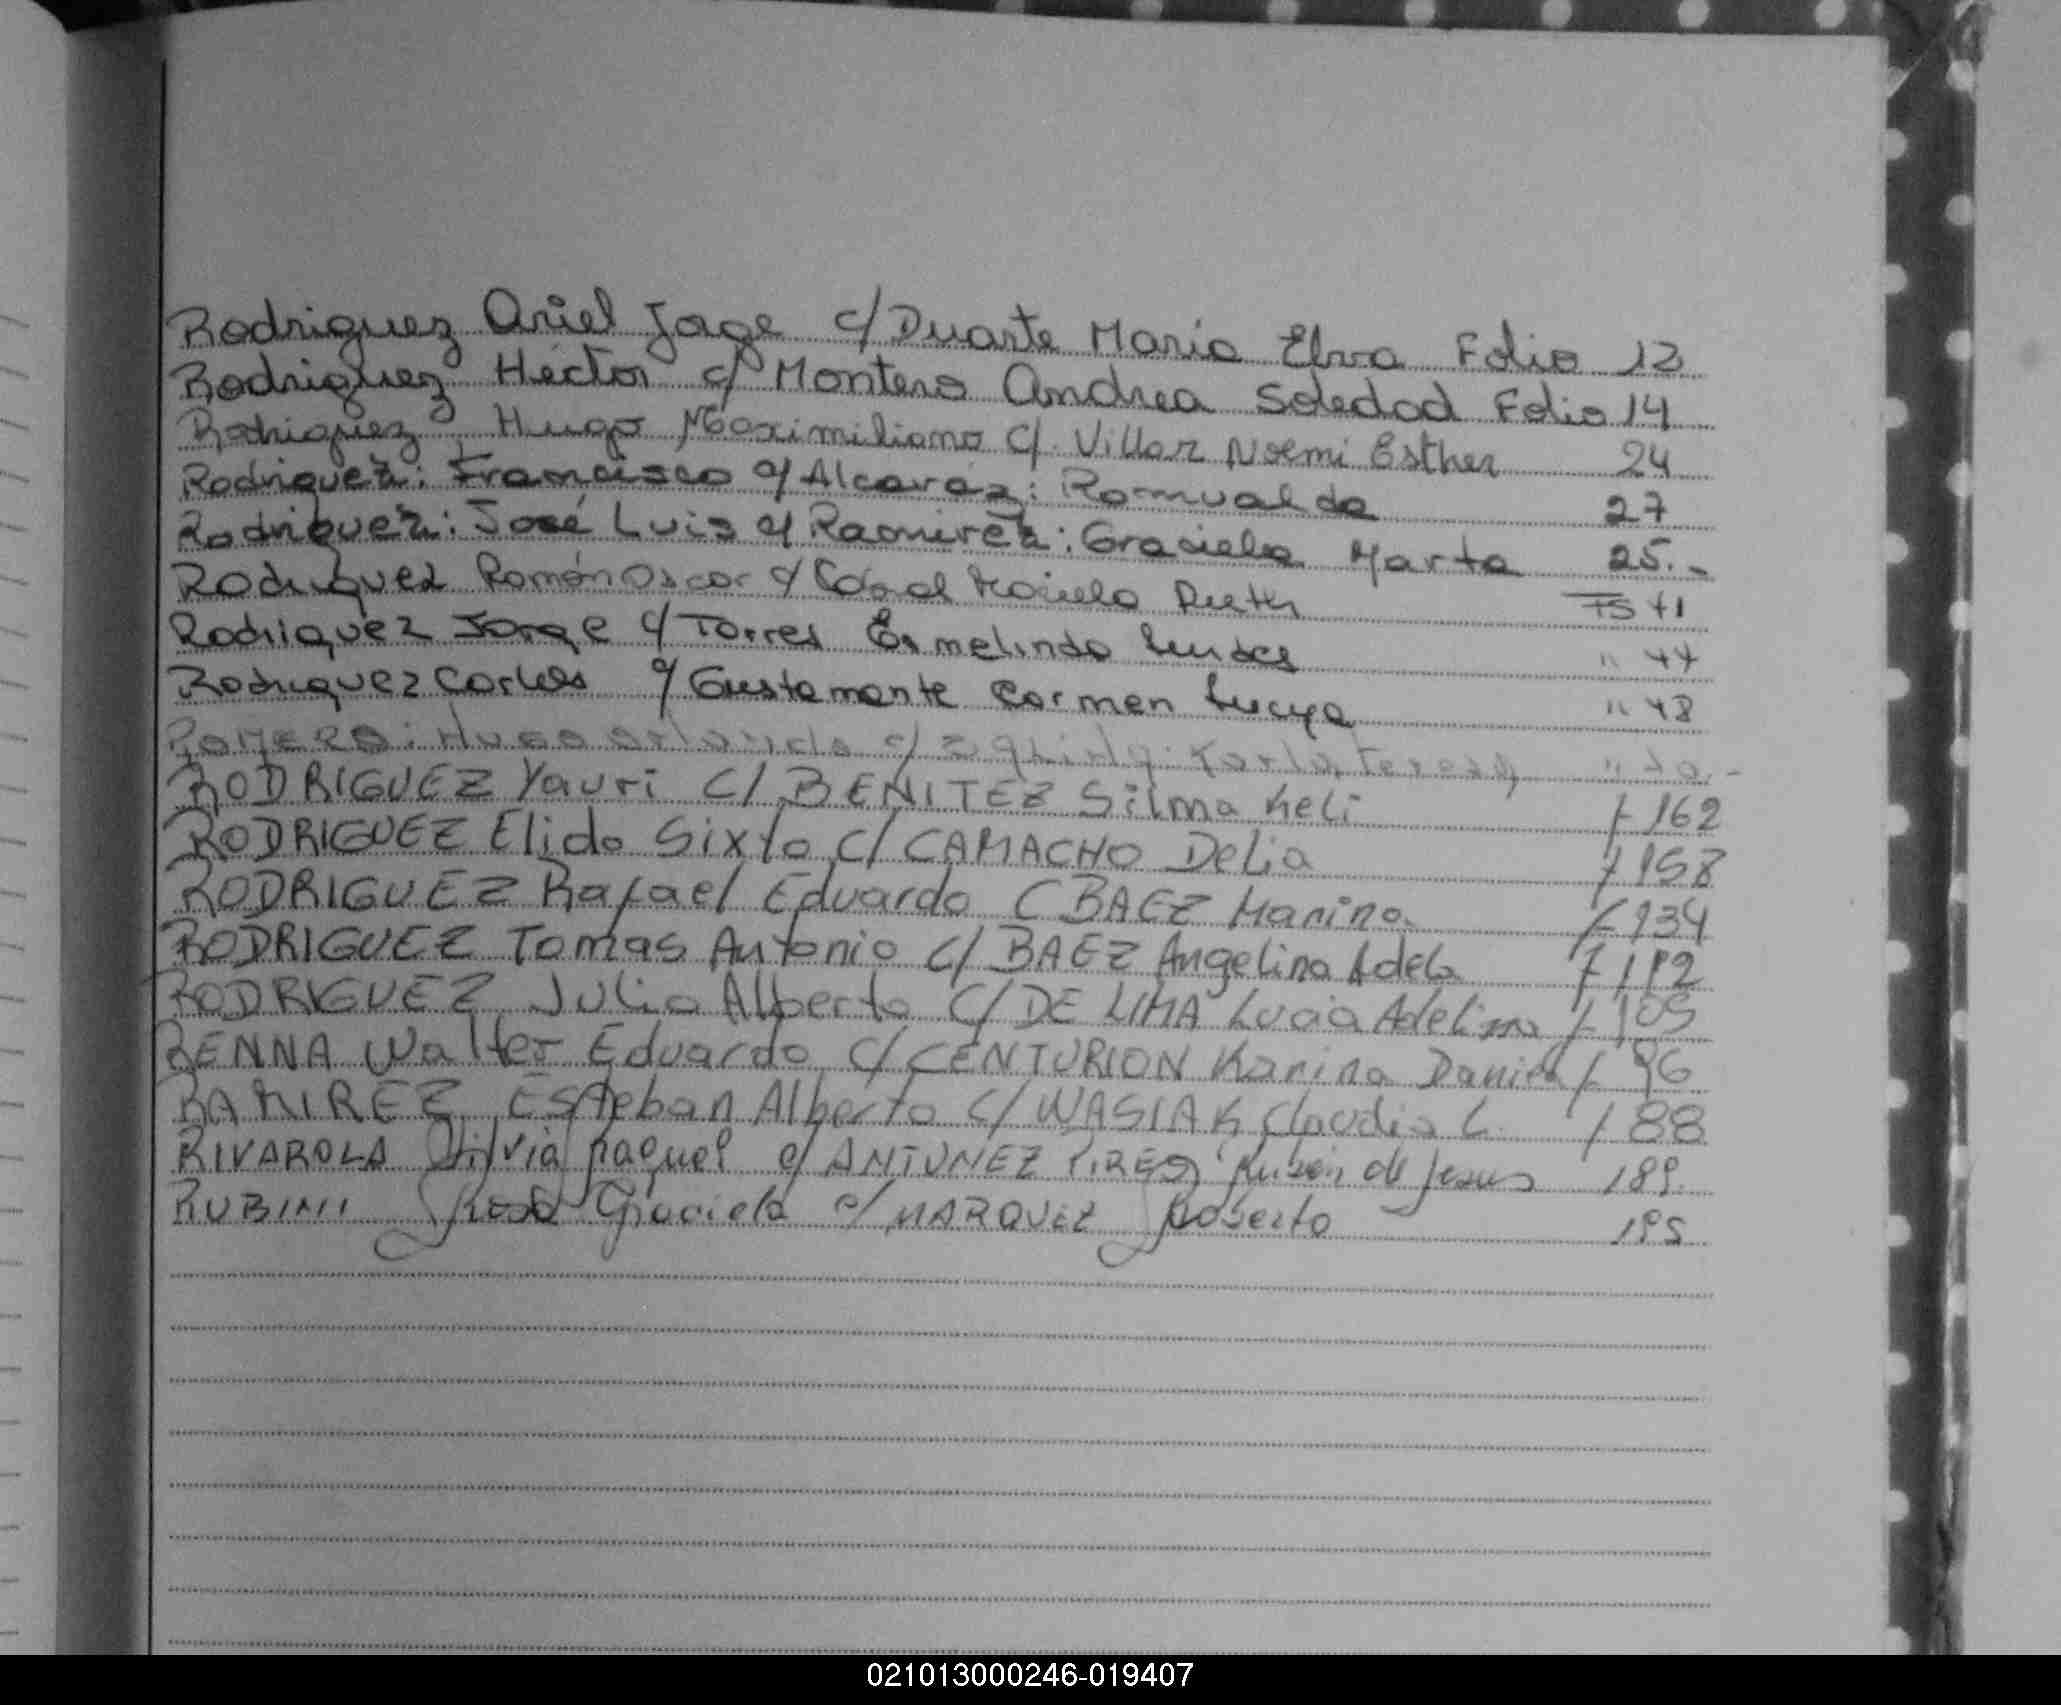 Rodriguez Ariel Jorge c/ Duarte Maria Elva Folio 12
Rodriguez Héctor c/ Montero Andrea Soledad Folio 14
Rodriguez Hugo Maximiliano c/. Villar Noemi Esther 24
Rodriguez: Francisco c/ Alcaráz: Romualda 27
Rodriguez: José Luis c/ Ramirez: Graciela Marta 25.-
Rodriguez Ramón Oscar c/ Mariela Ruth
Rodriguez Jorge c/ Torres Ermelinda " 44
Rodriguez Carlos c/ Gustamante Carmen Lucya " 48
Romero: Hugo Orlando c/ Karla Teresa "
RODRIGUEZ Yauri C/ BENITEZ Silma Keli f 162
RODRIGUEZ Elido Sixto C/ CAMACHO Delia f 158
RODRIGUEZ Rafael Eduardo C BAEZ Marina f 134
RODRIGUEZ Tomas Antonio C/ BAEZ Angelina Adela f 112
RODRIGUEZ Julio Alberto C/ DE LIMA Lucia Adelina f 105
RENNA Walter Eduardo C/ CENTURION Karina Daniela f 96
RAMIREZ Esteban Alberto C/ WASIAK Claudia L. f 88
RIVAROLA Silvia Raquel c/ ANTUNEZ PIRES Rubén de Jesus 189.
RUBINI Rosa Graciela c/ MARQUEZ Roberto 195
021013000246-019407